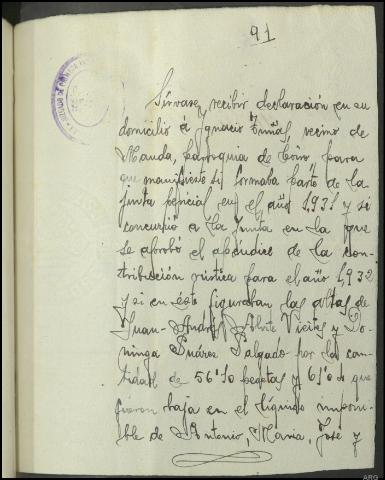 91
Sírvase, recibir declaración en su
domicilio á Ignacio Tomás, vecino de
Manda, parroquia de Cóiro, para
que manifieste si formaba parte de la
junta pericial en el año 1,931 y si
concurrió a la junta en la que
se aprobó el apéndice de la con-
tribución rústica para el año 1,932
y si en éste figuraban las altas de
Juan-Andrés Vieites y Do-
minga Suárez Salgado por la can-
tidad de 56'50 pesetas y que
fueron baja en el líquido imponi-
ble de Antonio, Maria, José y